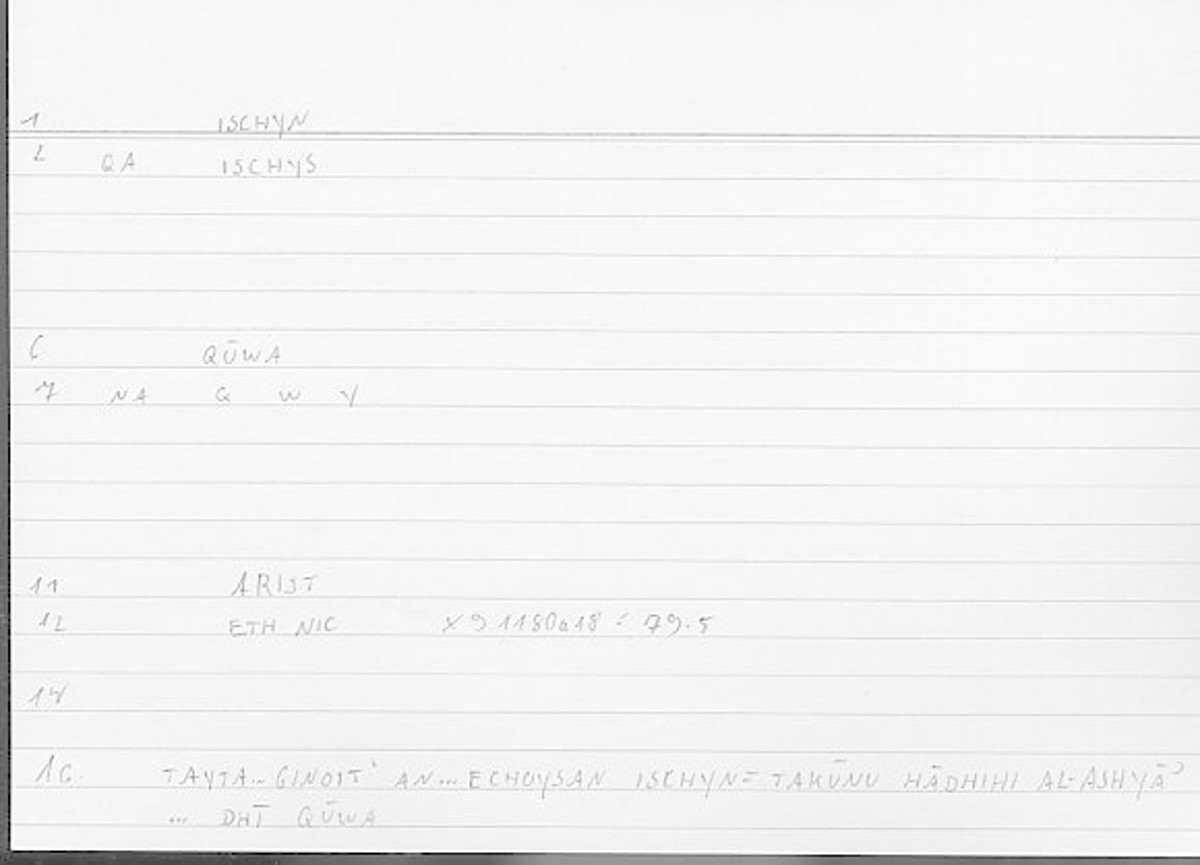 1 ISCHYN
2 QA ISCHYS
6 QŪWA
7 NA Q W Y
11 ARIST
12 ETH NIC X 9 1180a18 = 79.5
14
16 TAYTA... GINOIT' AN... ECHOYSAN ISCHYN = TAKŪNU HĀDHIHI AL-ASHYĀʾ
... DHĪ QŪWA